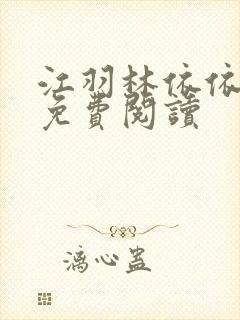 江羽林依依
免費閱讀
漓心蠱